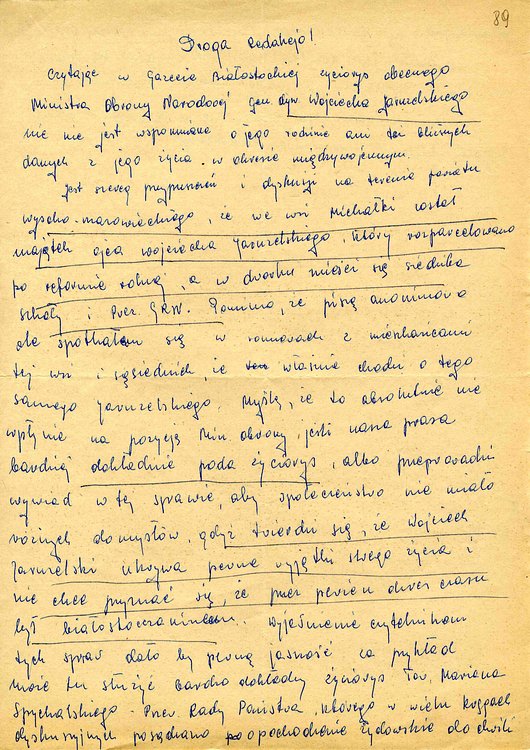 89
Droga Redakcjo!
Czytając w Gazecie Białostockiej życiorys obecnego
Ministra Obrony Narodowej gen dyw Wojciecha Jaruzelskiego
nic nie jest wspomniane o jego rodzinie ani też bliższych
danych z jego życia w okresie międzywojennym.
Jest szereg przypuszczeń i dyskusji na terenie powiatu
wysoko-mazowieckiego, że we wsi Michałki został
majątek ojca Wojciecha Jaruzelskiego, który rozparcelowano
po reformie rolnej, a w dworku mieści się siedziba
szkoły i Prez. GRN. Pomimo, że piszę anonimowo
ale spotkałam się w rozmowach z mieszkańcami
tej wsi i sąsiednich, że właśnie chodzi o tego
samego Jaruzelskiego. Myślę, że to absolutnie nie
wpłynie na pozycję Min. obrony, jeśli nasza prasa
bardziej dokładnie poda życiorys, albo przeprowadzi
wywiad w tej sprawie, aby społeczeństwo nie miało
różnych domysłów, gdyż twierdzi się, że Wojciech
Jaruzelski ukrywa pewne wyjątki swego życia i
nie chce przyznać się, że przez pewien okres czasu
był białostoczaninem. Wyjaśnienie czytelnikom
tych spraw dało by pewną jasność za przykład
może tu służyć bardzo dokładny życiorys Tow. Mariana
Spychalskiego - Przew. Rady Państwa, którego w wielu kręgach
dyskusyjnych posądzano o pochodzenie żydowskie do chwili